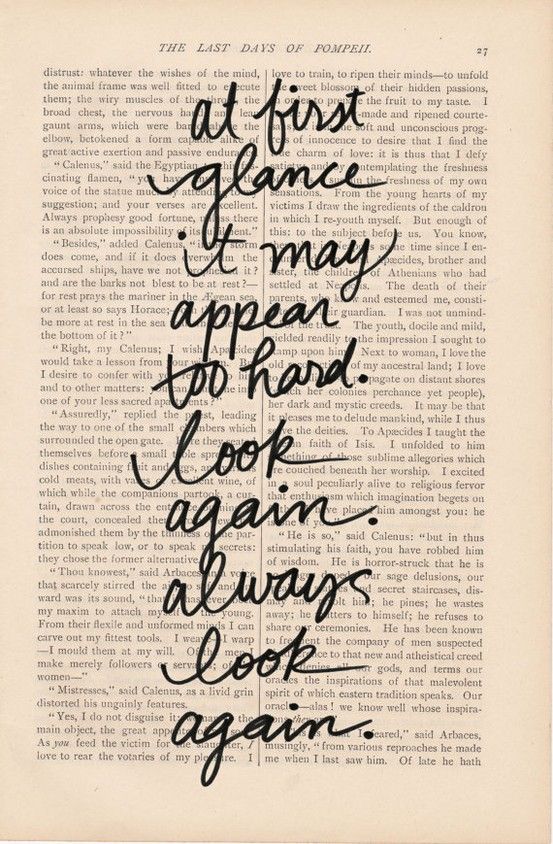 THE LAST DAYS OF POMPEII.
27
at first
glance
it may
appear
too hard.
look
again.
always
look
again.
distrust: whatever the wishes of the mind,
the animal frame was well fitted to execute
them; the wiry muscles of the
broad chest, the nervous
gaunt arms, which were
elbow, betokened a form capable alike
great active exertion and passive endurance
“Calenus,” said the Egyptian
cinating flamen, “you have
voice of the statue much
suggestion; and your verses are excellent.
Always prophesy good fortune, unless there
is an absolute impossibility
“Besides,” added Calenus,
does come, and if it does
accursed ships, have we not it?
and are the barks not blest to be at rest?—
for rest prays the mariner in the Ægean sea
or at least so says Horace:
be more at rest in the sea
the bottom of it?”
“Right, my Calenus; I wish Apæcides
would take a lesson from
I desire to confer with you
and to other matters:
one of your less sacred apartments?”
“Assuredly,” replied the priest, leading
the way to one of the small chambers which
surrounded the open gate.
themselves before small table
dishes containing fruit and eggs,
cold meats, with excellent wine, of
which while the companions partook, a cur-
tain, drawn across the
the court, concealed
admonished them by the thinness par-
tition to speak low, or to speak secrets:
they chose the former alternative.
“Thou knowest,” said Arbaces,
that scarcely stirred the
ward was its sound, “that
my maxim to attach my young.
From their flexile and unformed minds I can
carve out my fittest tools. I weave— I warp
—I mould them at my will. Of
make merely followers or servants;
women—”
“Mistresses,” said Calenus, as a livid grin
distorted his ungainly features.
“Yes, I do not disguise it: the
main object, the great
As you feed the victim for the slaughter, I
love to rear the votaries of my pleasure. I
love to train, to ripen their minds—to unfold
the sweet blossom of their hidden passions,
the fruit to my taste. I
made and ripened courte-
soft and unconscious prog-
of innocence to desire that I find the
charm of love: it is thus that I defy
contemplating the freshness
the freshness of my own
sensations. From the young hearts of my
victims I draw the ingredients of the caldron
in which I re-youth myself. But enough of
this: to the subject before us. You know,
time since I en-
Apæcides, brother and
sister, the children of Athenians who had
settled at The death of their
parents, who knew and esteemed me, consti-
guardian. I was not unmind-
The youth, docile and mild,
yielded readily to the impression I sought to
stamp upon him. Next to woman, I love the
old of my ancestral land; I love
propagate on distant shores
which her colonies perchance yet people),
her dark and mystic creeds. It may be that
it pleases me to delude mankind, while I thus
serve the deities. To Apæcides I taught the
faith of Isis. I unfolded to him
something of those sublime allegories which
are couched beneath her worship. I excited
in a soul peculiarly alive to religious fervor
that enthusiasm which imagination begets on
place him amongst you: he
“He is so,” said Calenus: “but in thus
stimulating his faith, you have robbed him
of wisdom. He is horror-struck that he is
our sage delusions, our
and secret staircases, dis-
him; he pines; he wastes
away; he mutters to himself; he refuses to
share our ceremonies. He has been known
to frequent the company of men suspected
to that new and atheistical creed
which denies all our gods, and terms our
oracles the inspirations of that malevolent
spirit of which eastern tradition speaks. Our
oracles—alas! we know well whose inspira-
feared,” said Arbaces,
musingly, “from various reproaches he made
me when I last saw him. Of late he hath